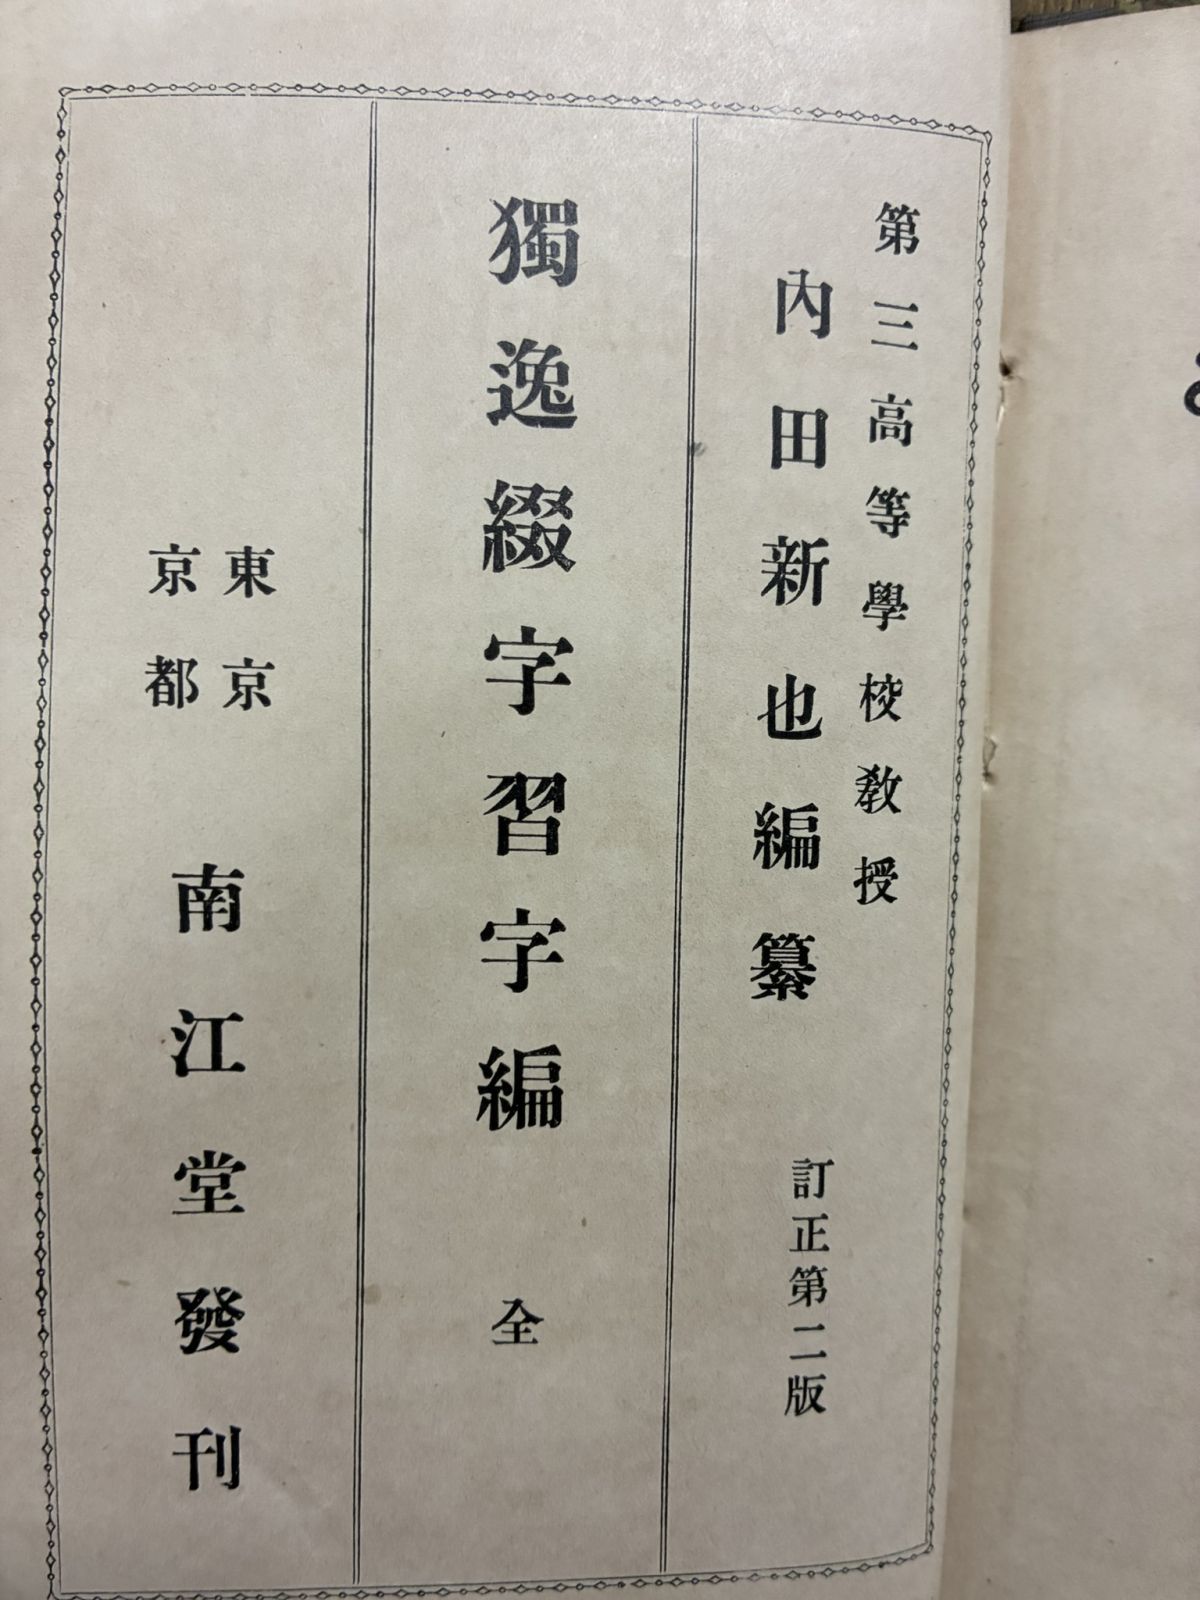 第三高等學校教授
內田新也編纂 訂正第二版
獨逸綴字習字編 全
東京
京都
南江堂發刊